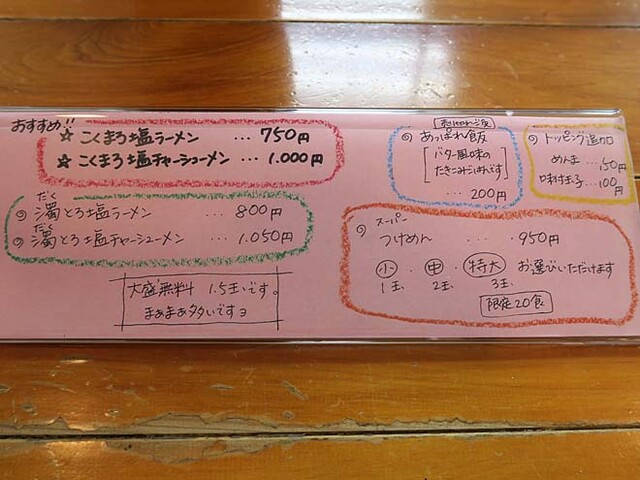 おすすめ!!
☆ こくまろ塩ラーメン ・・・ 750円
☆ こくまろ塩チャーシューメン ・・・ 1.000円
だく
◎ 濁とろ塩ラーメン ・・・ 800円
だく
◎ 濁とろ塩チャーシューメン ・・・ 1.050円
大盛無料 1.5玉です。
まぁまぁ多いですョ
売り切れご免
◎ あっぱれ飯
バター風味の
たきこみごはんです
・・・ 200円
◎ トッピング追加
めんま ・・・ 150円
味付玉子 ・・・ 100円
◎ スーパー
つけめん ・・・・ 950円
小 ・ 中 ・ 特大 お選びいただけます
1玉 2玉 3玉
限定20食